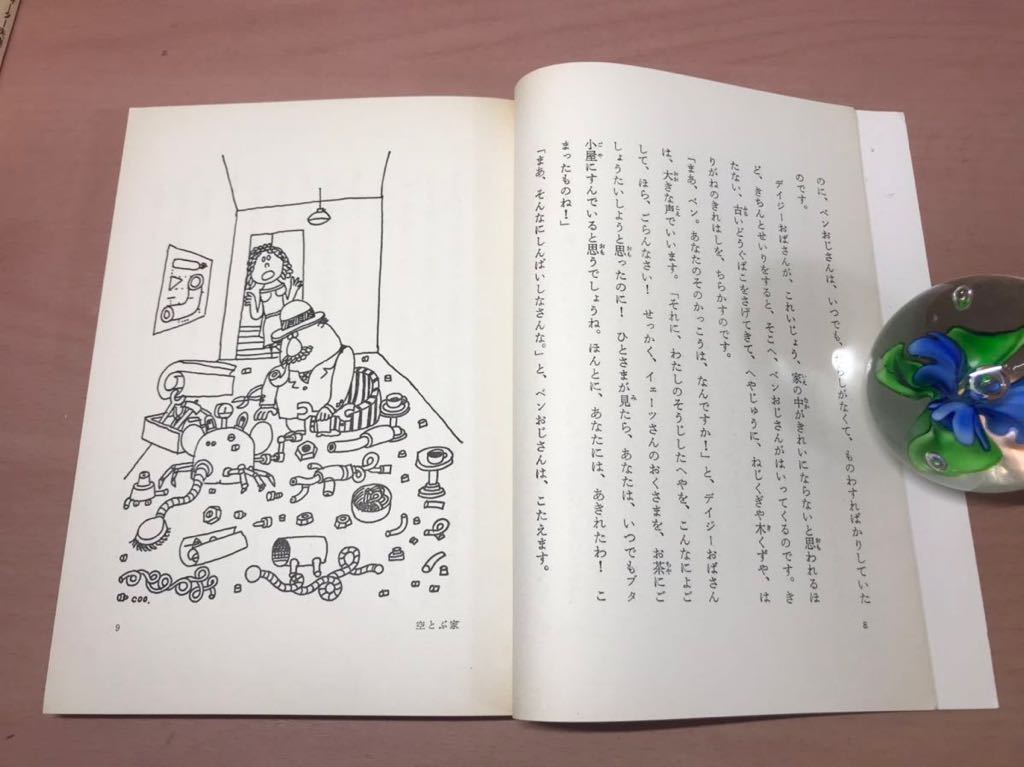 のに、ベンおじさんは、いつでも、だらしがなくて、ものわすればかりしていた
のです。
デイジーおばさんが、これいじょう、家の中がきれいにならないと思われるほ
ど、きちんとせいりをすると、そこへ、ベンおじさんがはいってくるのです。き
たない、古いどうぐばこをさげてきて、へやじゅうに、ねじくぎや木くずや、は
りがねのきれはしを、ちらかすのです。
「まあ、ベン。あなたのそのかっこうは、なんですか!」と、デイジーおばさん
は、大きな声でいいます。「それに、わたしのそうじしたへやを、こんなによご
して、ほら、ごらんなさい! せっかく、イェーツさんのおくさまを、お茶にご
しょうたいしようと思ったのに! ひとさまが見たら、あなたは、いつでもブタ
小屋にすんでいると思うでしょうね。ほんとに、あなたには、あきれたわ! こ
まったものね!」
「まあ、そんなにしんぱいしなさんな。」と、ベンおじさんは、こたえます。
8
coo.
9
空とぶ家